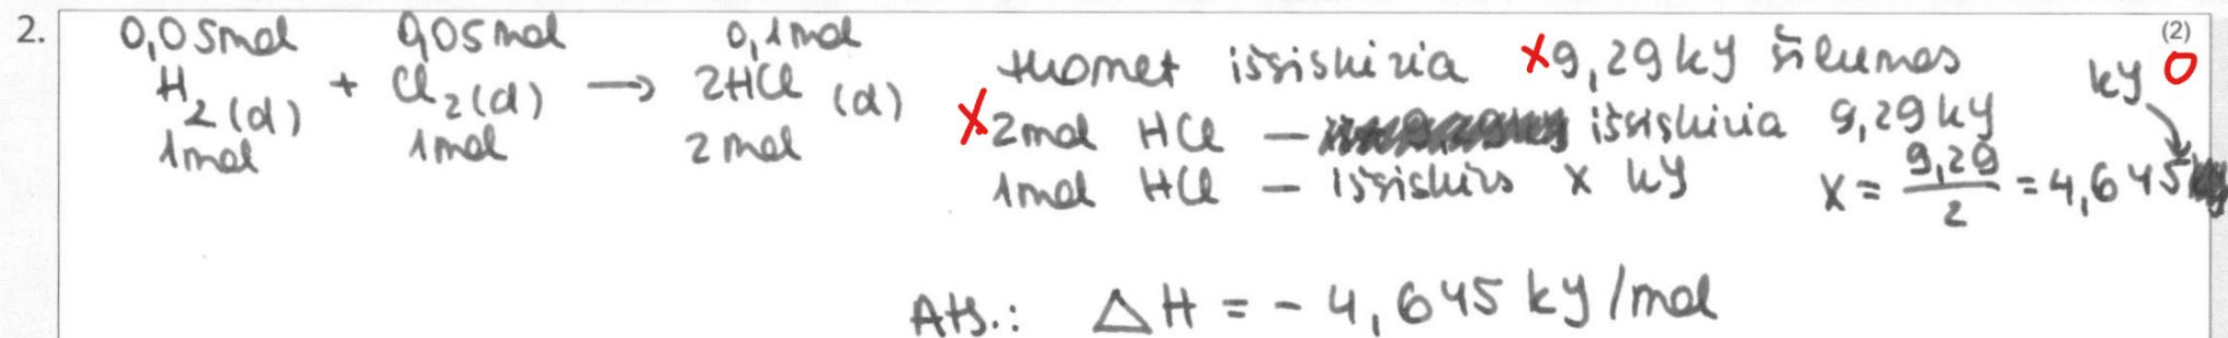 2.
(2)
0,05mol 0,05mol 0,1mol
H2(d) + Cl2(d) → 2HCl (d)
1mol 1mol 2mol
tuomet išsiskiria x 9,29 kJ šilumos
kJ 0
x 2mol HCl — išsiskiria 9,29 kJ
1mol HCl — išsiskirs x kJ x = 9,29/2 = 4,645
Ats.: ΔH = - 4,645 kJ/mol